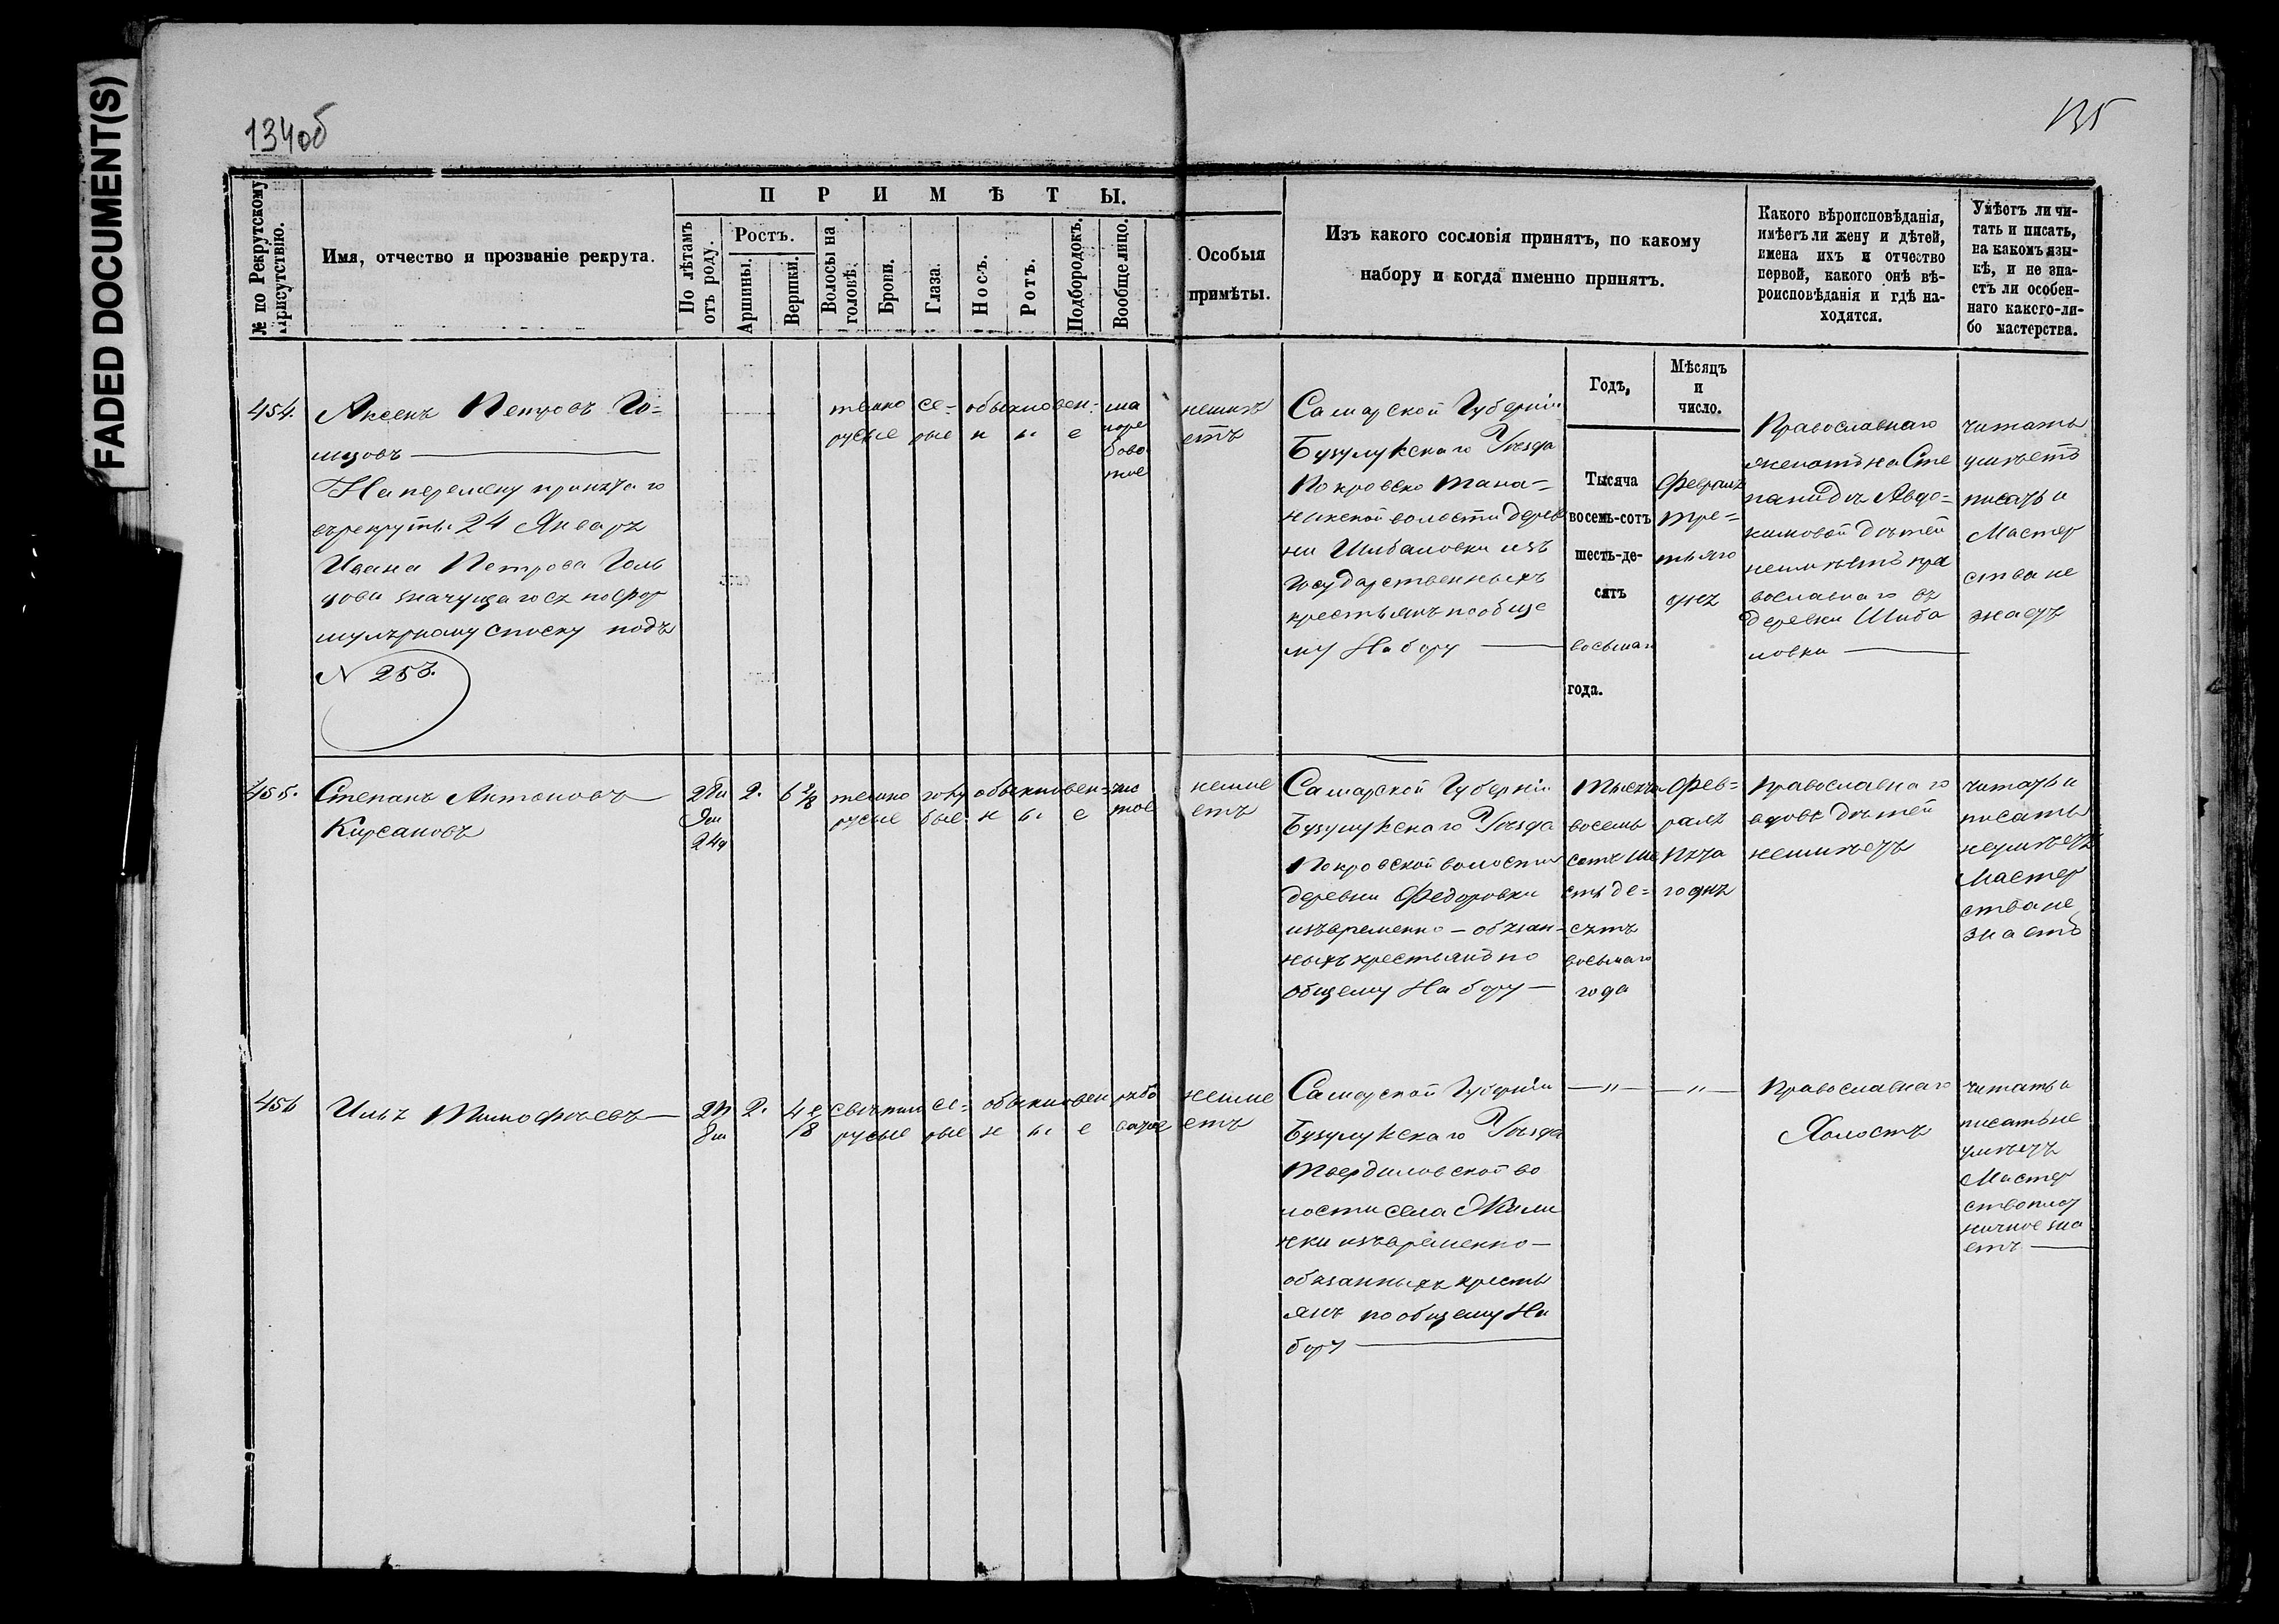 FADED DOCUMENT(S)
134об
135
№ по Рекрутскому присутствію.
Имя, отчество и прозваніе рекрута.
ПРИМѢТЫ.
По лѣтамъ отъ роду.
Ростъ.
Аршины.
Вершки.
Волосы на головѣ.
Брови.
Глаза.
Носъ.
Ротъ.
Подбородокъ.
Вообще лицо.
Особыя
примѣты.
Изъ какого сословія принятъ, по какому
набору и когда именно принятъ.
Какого вѣроисповѣданія,
имѣетъ ли жену и дѣтей,
имена ихъ и отчество
первой, какого онѣ вѣ-
роисповѣданія и гдѣ на-
ходятся.
Умѣетъ ли чи-
тать и писать,
на какомъ язы-
кѣ, и не зна-
етъ ли особен-
наго какого-ли-
бо мастерства.
Годъ,
Мѣсяцъ
и
число.
454.
Аксенъ Петровъ
На перемену принятаго
въ рекруты 24 Января
Ивана Петрова Голь
цова значущагося по фор
мулярному списку подъ
N 253.
темно
русые
се-
рые
обыкновен-
н ы е
неимѣ
етъ
Самарской Губерніи
Бузулукскаго Уѣзда
Покровско Тана-
ликской волости дерев
ни Шибаловки изъ
Государственныхъ
крестьянъ по обще
му Набору
Тысяча
восемь-сотъ
шесть-де-
сятъ
восьмаго
года.
Февраля
тре-
тьяго
дня
Православнаго
женатъ на Сте
панидѣ Авдо-
кимовой дѣтей
неимѣетъ пра
вославнаго въ
деревни Шиба
ловки
читать
умѣетъ
писать и
Мастер
ства не
знаетъ
455.
Степанъ Антоновъ
Кирсановъ
2.
6 2/8
темно
русые
голу
бые
обыкновен-
н ы е
чис
тое
неиме
етъ
Самарской Губерніи
Бузулукскаго Уѣзда
Покровской волости
деревни Федоровки
изъ временно-обязан-
ныхъ крестьянъ по
общему Набору
Тысяча
восемь
сотъ ше
сть де-
сятъ
восьмаго
года
Фев-
раля
пята
го дня
Православнаго
вдовъ дѣтей
неимѣетъ
читать и
писать
неумѣетъ
Мастер
ства не
знаетъ
456
Илья Тимофѣевъ
2.
4 2/8
свѣтло
русые
се-
рые
обыкновен
н ы е
рябо
ватое
неиме
етъ
Самарской Губерніи
Бузулукскаго Уѣзда
Твердиловской во
лости села Жили
нки изъ временно-
обязанныхъ кресть
янъ по общему На
бору
—„—
—„—
Православнаго
Холостъ
читать и
писать не
умѣетъ
Мастер
ство плот
ничное зна
етъ